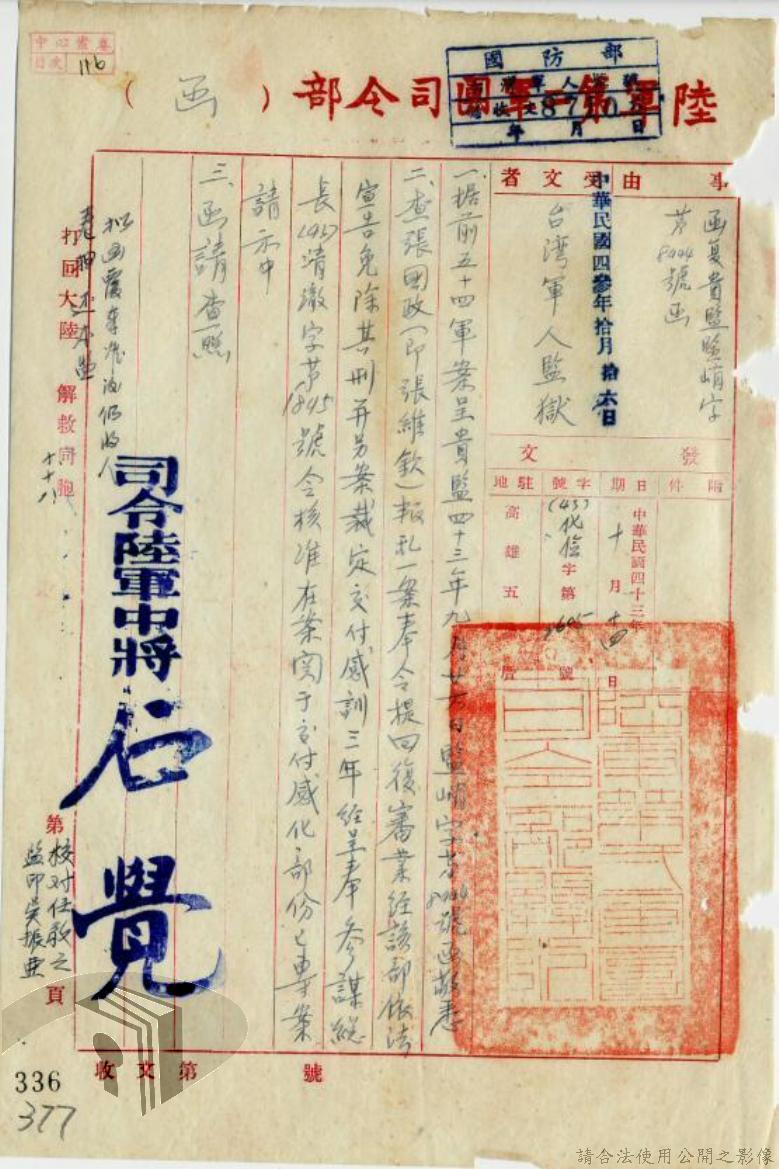 中心案卷
目次
116
國防部
陸軍第二軍團司令部（函）
事由
受文者
函复貴監監嵴字
第8444號函
中華民國四參年拾月拾六日
台湾軍人監獄
發文
附件
日期
字號
駐地
中華民國四十三年
十月十四日
(43)化俭字第2605號
高雄五
一、据前五十四軍案呈貴監四十三年九月廿一日監嵴字第8444號函敬悉
二、查張國政（即張維欽）叛乱一案奉令提回復審業经該部依法
宣告免除其刑并另案裁定交付感訓三年经呈奉參謀総
長(43)清澈字第1845號令核准在案関于交付感化部份已專案
請示中
三、函請查照
司令陸軍中將石覺
打回大陸 解救同胞
十十八
校对任敬之
監印吳振亜
第頁
陸軍第二軍團司令部關防
收文第號
336
377
請合法使用公開之影像